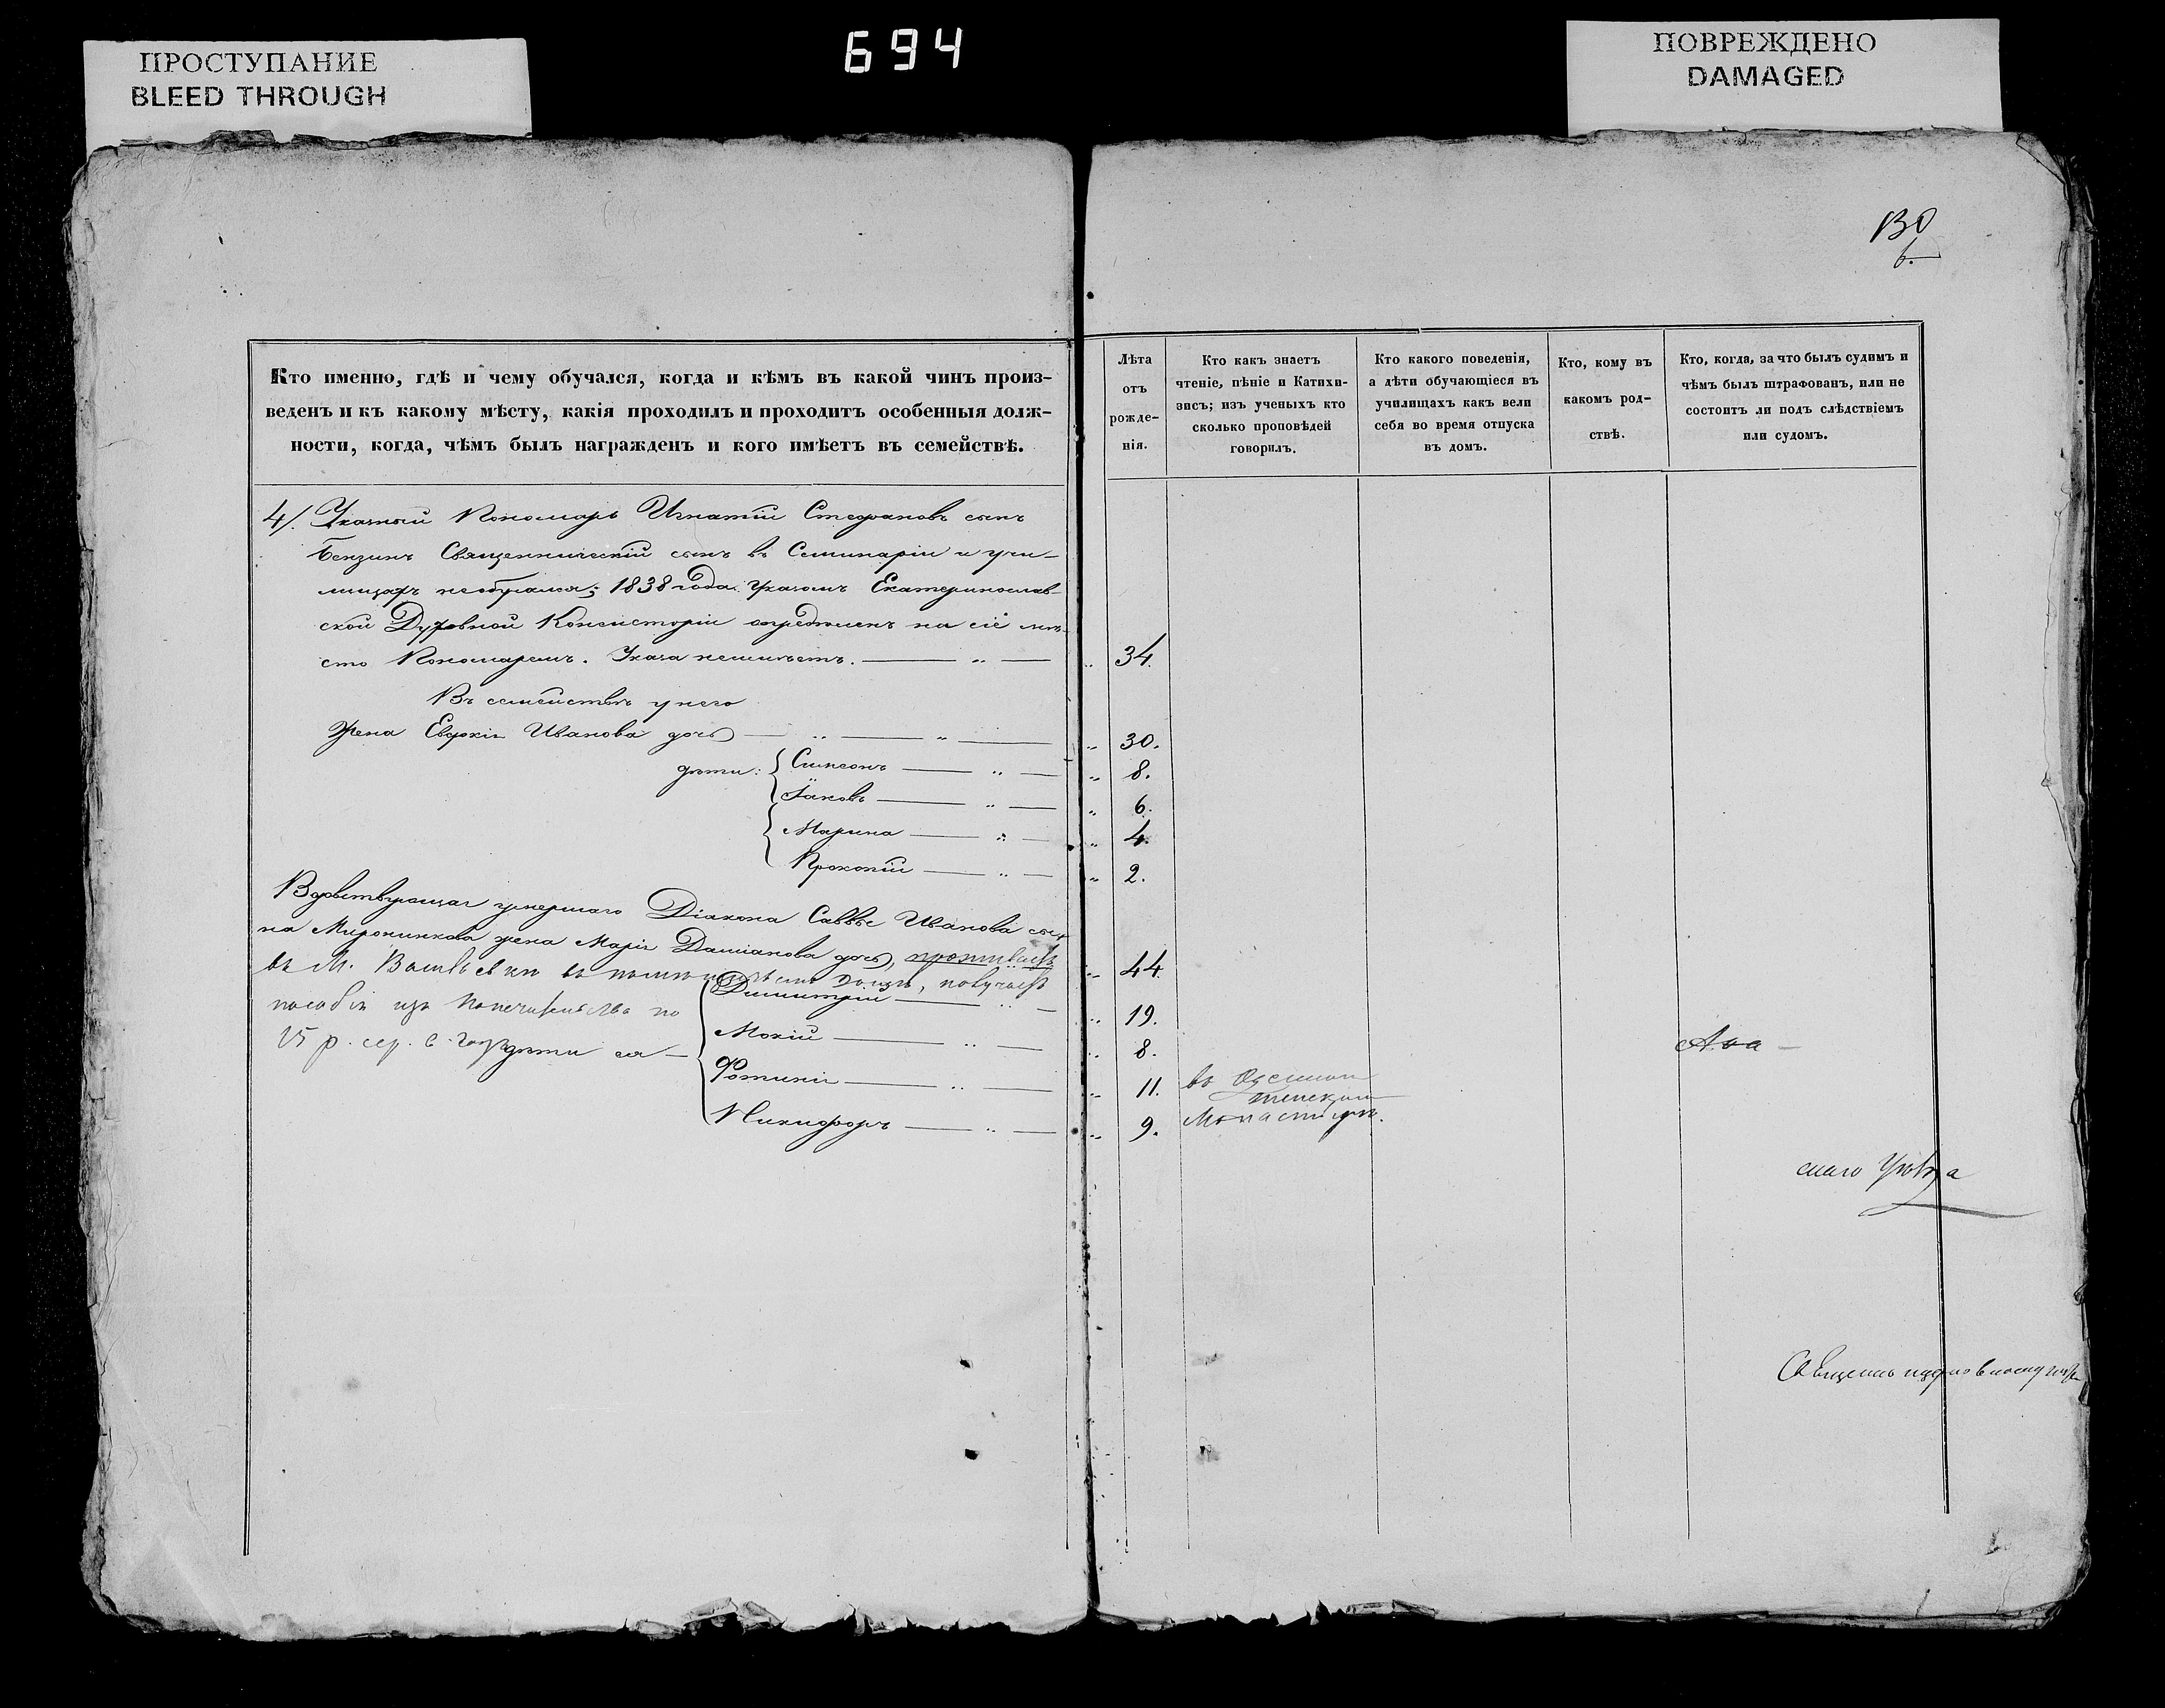 ПРОСТУПАНИЕ
BLEED THROUGH
694
ПОВРЕЖДЕНО
DAMAGED
Кто именно, гдѣ и чему обучался, когда и кѣмъ въ какой чинъ произ-
веденъ и къ какому мѣсту, какія проходилъ и проходитъ особенныя долж-
ности, когда, чѣмъ былъ награжденъ и кого имѣетъ въ семействѣ.
4/. Указный Пономарь Игнатій Стефановъ сынъ
Бензинъ Священническій сынъ въ Семинаріи и учи-
лищахъ необучался; 1838 года Указомъ Екатеринослав-
ской Духовной Консисторіи опредѣленъ на сіе мѣ-
сто Пономаремъ. Указа неимѣетъ.
Въ семействѣ у него
Жена Евфкія Иванова дочь
дѣти: Симеонъ
Іаковъ
Марина
Прокопій
Вдовствующая умершаго Діакона Саввы Иванова сы-
на Миронинкова жена Марія Даміанова дочь, проживаетъ
въ М. Васильевки въ домѣ, получаетъ
пособія изъ Попечительства по
15 р. сер. в годъ дѣти ея
Димитрій
Мокій
Фотинія
Никифоръ
Лѣта
отъ
рожде-
нія.
34.
30.
8.
6.
4.
2.
44.
19.
8.
11.
9.
Кто какъ знаетъ
чтеніе, пѣніе и Катихи-
зисъ; изъ ученыхъ кто
сколько проповѣдей
говорилъ.
въ
Монастырѣ.
Кто какого поведенія,
а дѣти обучающіеся въ
училищахъ какъ вели
себя во время отпуска
въ домъ.
Кто, кому въ
какомъ род-
ствѣ.
Кто, когда, за что былъ судимъ и
чѣмъ былъ штрафованъ, или не
состоитъ ли подъ слѣдствіемъ
или судомъ.
скаго Уѣзда